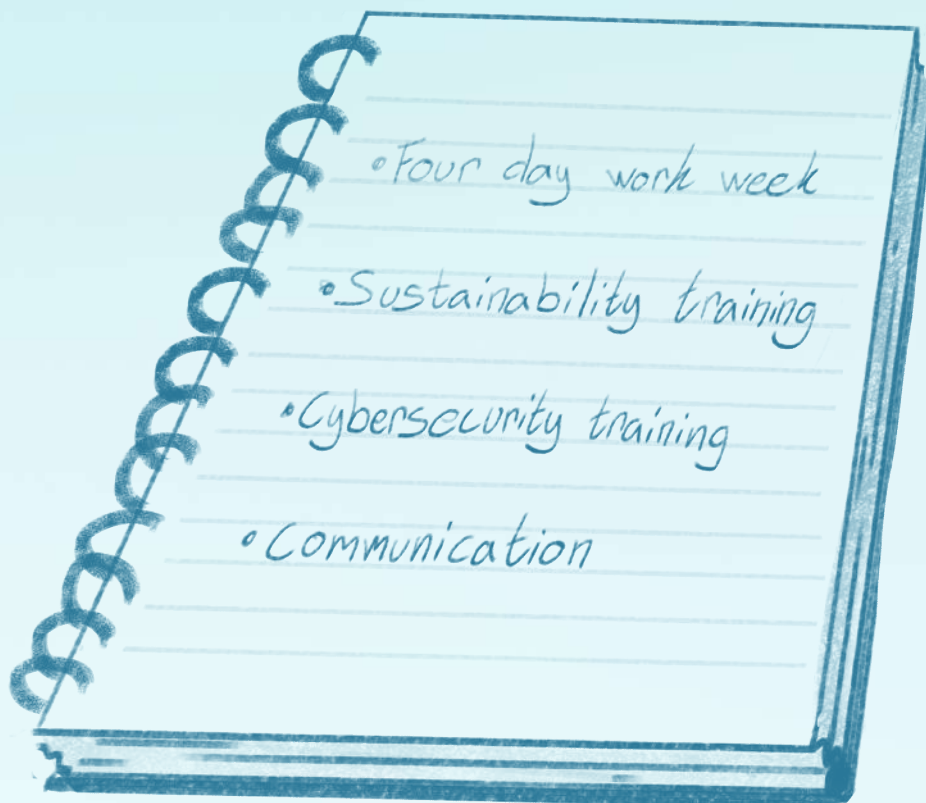 •Four day work week
•Sustainability training
•Cybersecurity training
•Communication